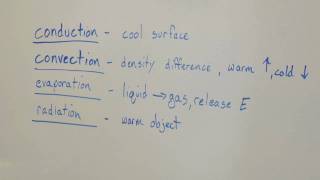 conduction - cool surface
convection - density difference, warm ↑, cold ↓
evaporation - liquid → gas, release E
radiation - warm object